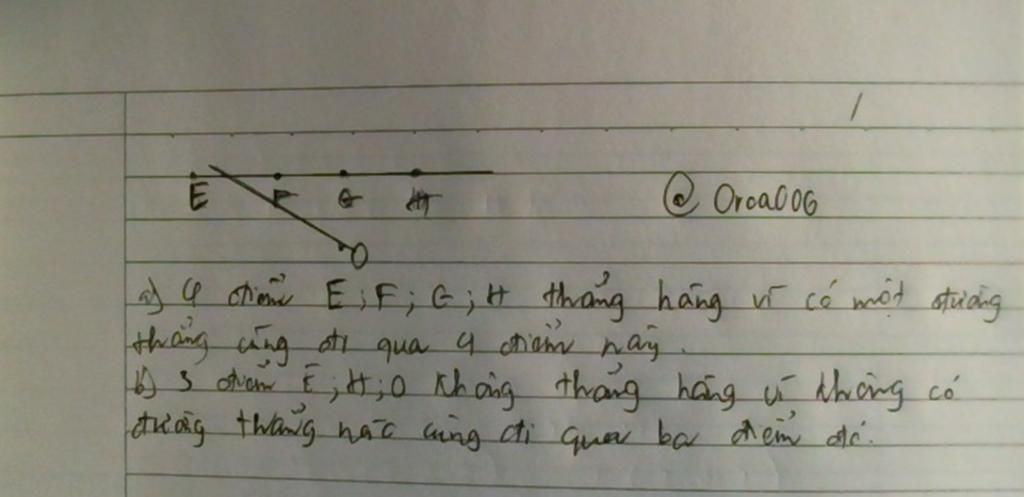 E F G H
@ Orca006
O
a) 4 điểm E; F; G; H thẳng hàng vì có một đường
thẳng cùng đi qua 4 điểm này.
b) 3 điểm E; H; O không thẳng hàng vì không có
đường thẳng nào cùng đi qua ba điểm đó.